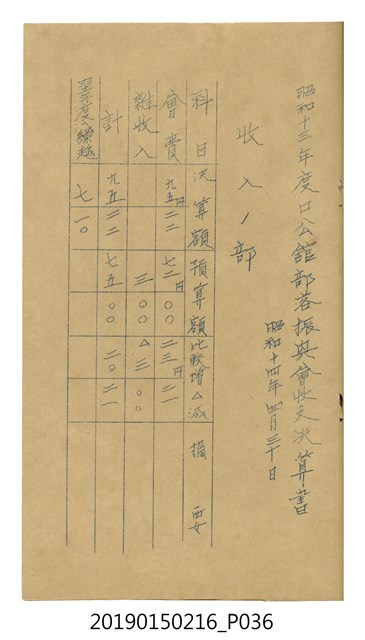 昭和十三年度口公館部落振興會收支決算書
昭和十四年四月三十日
收入ノ部
科目 決算額 預算額 比較增△減 摘要
會費 九五円二二 七二円〇〇 二三円二一
雜收入 三〇〇 △三〇〇
計 九五二二 七五〇〇 二〇二一
翌年度へ繰越 七一〇
20190150216_P036